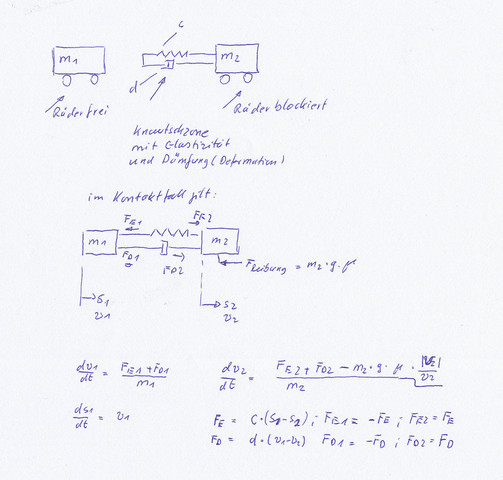 c
m1
m2
d
Räder frei
Räder blockiert
Knautschzone
mit Elastizität
und Dämpfung (Deformation)
im Kontaktfall gilt:
FE1
FE2
m1
m2
FD1
FD2
FReibung = m2 · g · μ
s1
v1
s2
v2
dv1/dt = (FE1 + FD1)/m1
dv2/dt = (FE2 + FD2 − m2 · g · μ · |v2|/v2)/m2
ds1/dt = v1
FE = c · (s1 − s2) ; FE1 = −FE ; FE2 = FE
FD = d · (v1 − v2) FD1 = −FD ; FD2 = FD